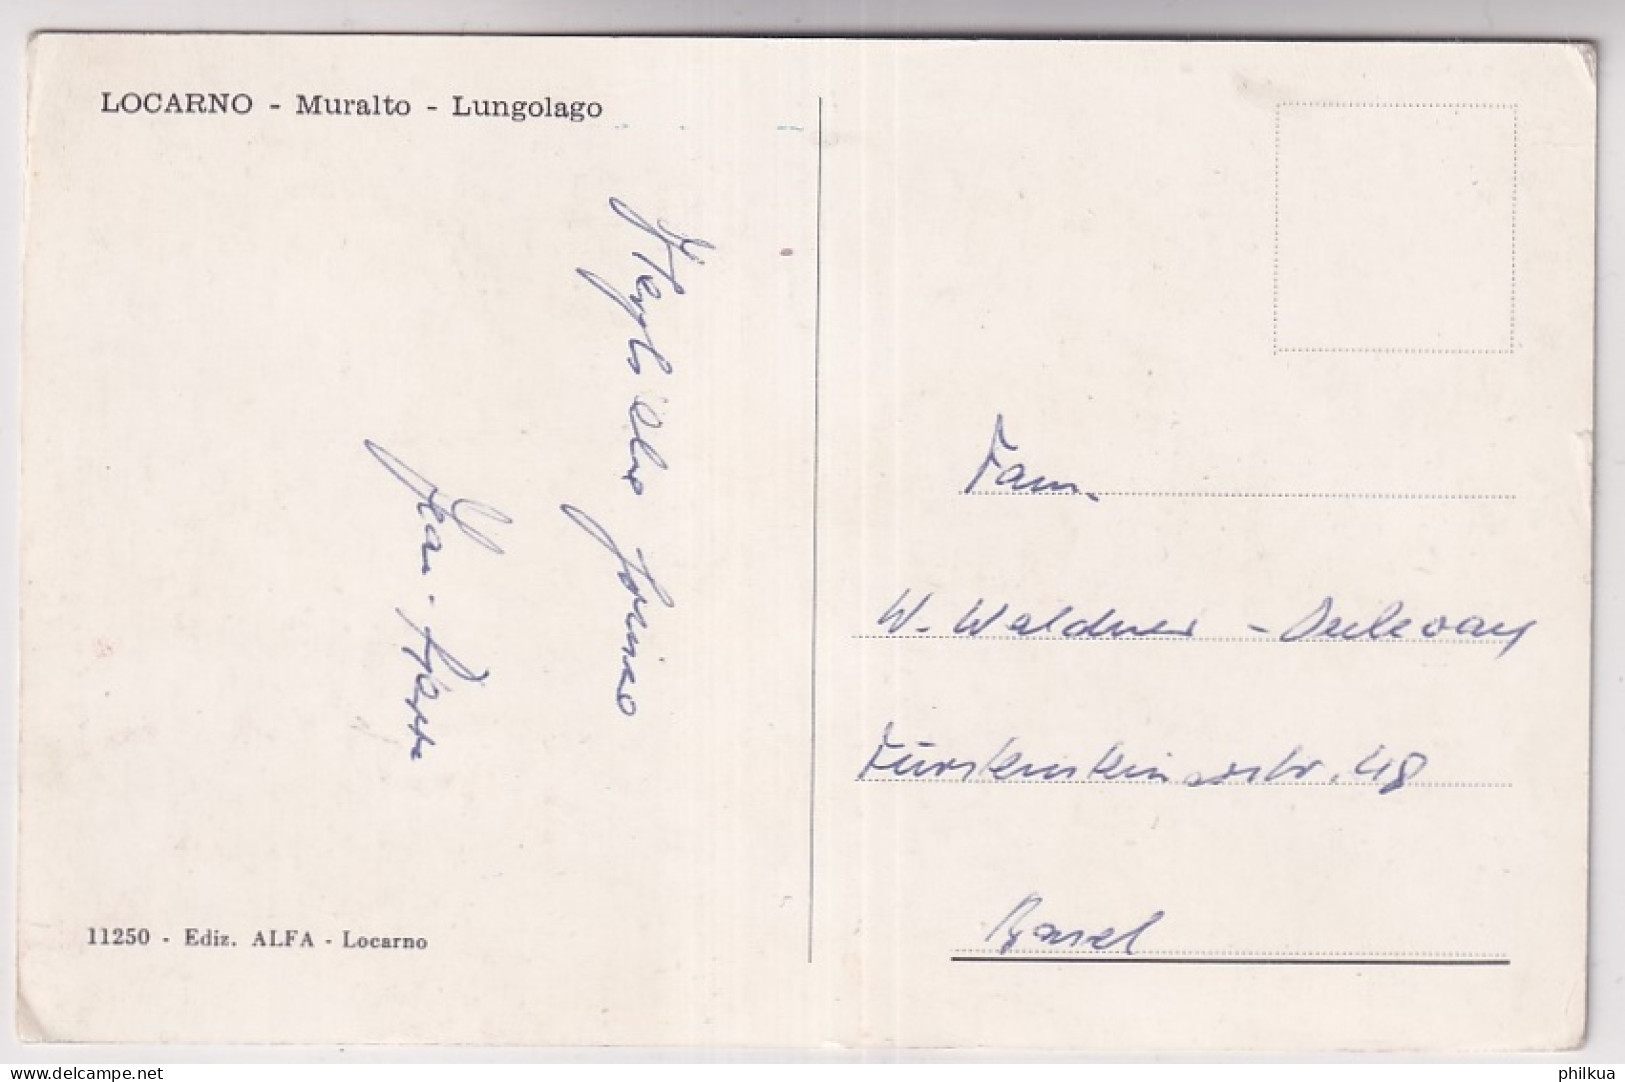 LOCARNO - Muralto - Lungolago
Jean-Pierre
11250 - Ediz. ALFA - Locarno
Fam.
W. Waldner -
Fürstensteinerstr. 48
Basel
delcampe.net
philkua